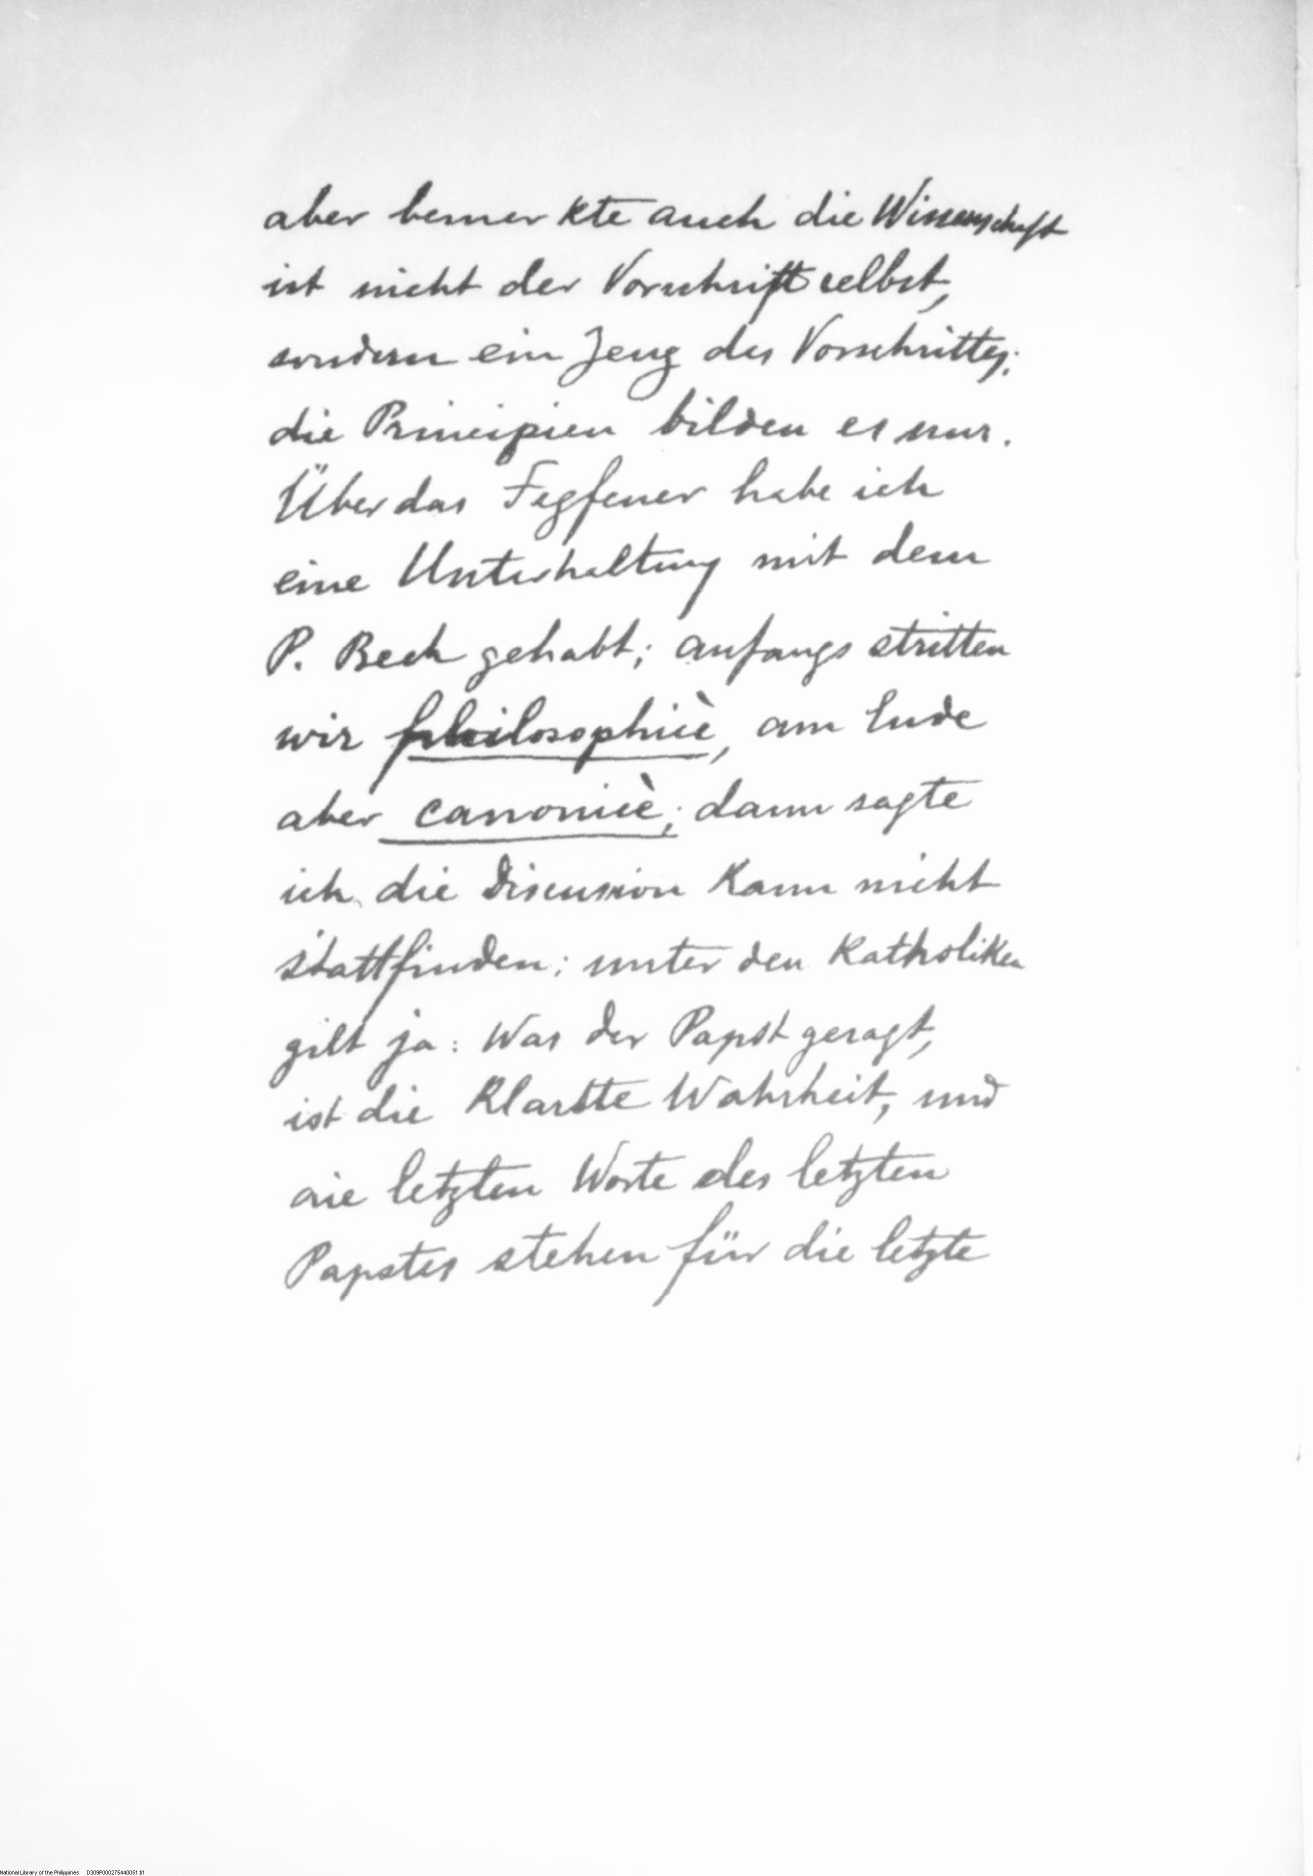 aber bemerkte auch die Wissenschaft
ist nicht der Vorschrift selbst,
sondern ein Zeug des Vorschrittes;
die Principien bilden es nur.
Über das Fegfeuer habe ich
eine Unterhaltung mit dem
P. Bech gehabt; anfangs stritten
wir philosophicè, am Ende
aber canonicè; dann sagte
ich die Discussion kann nicht
stattfinden; unter den Katholiken
gilt ja: Was der Papst gesagt,
ist die klarste Wahrheit, und
die letzten Worte des letzten
Papstes stehen für die letzte
National Library of the Philippines